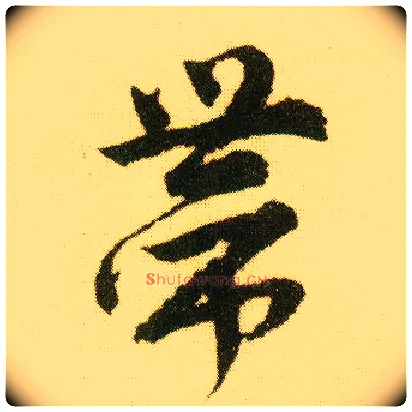 帶
Shufawang.CN